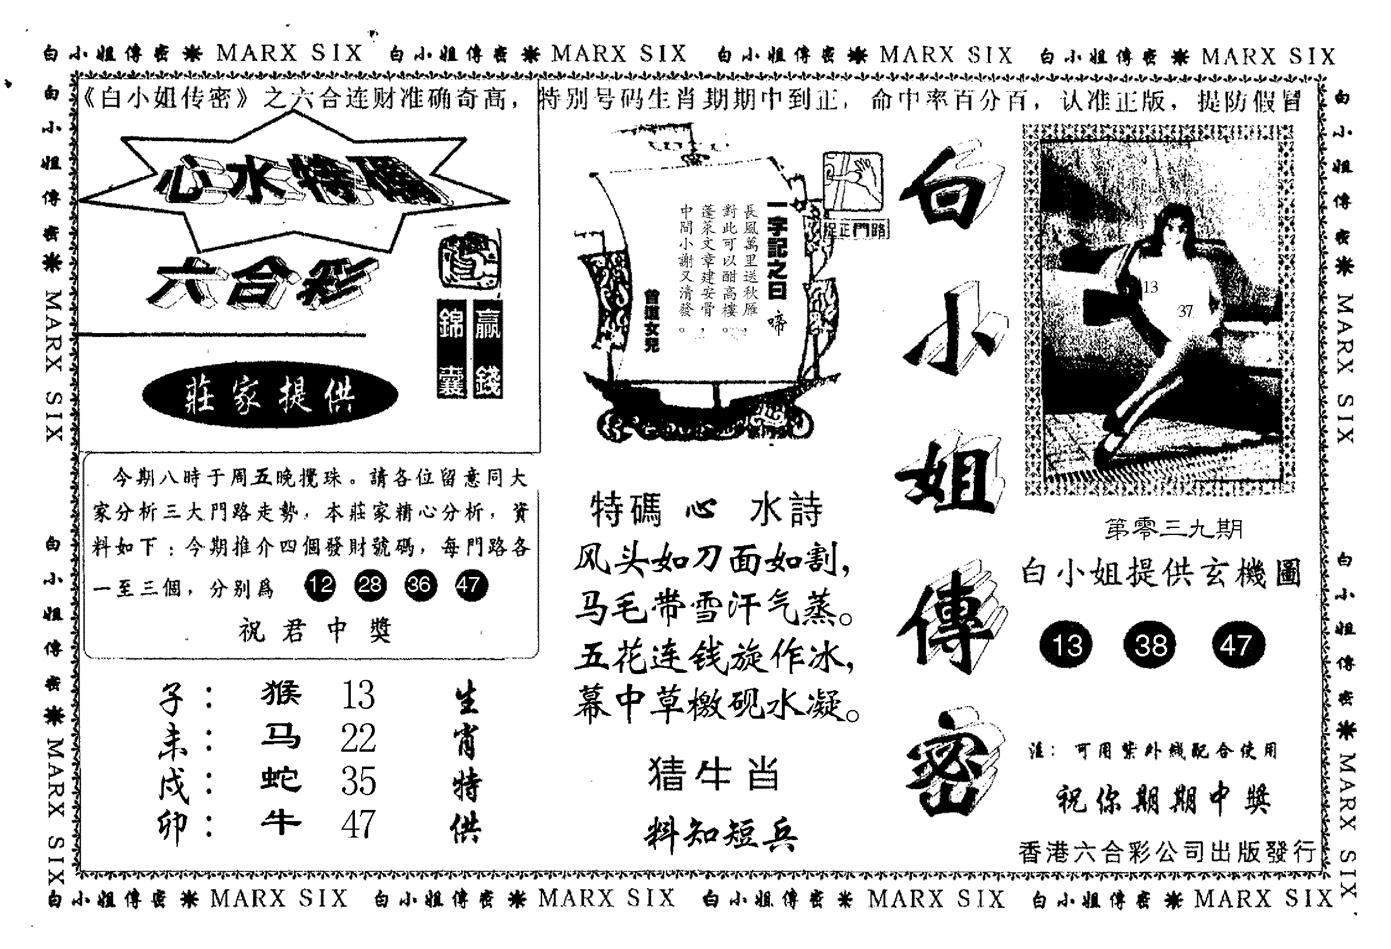 白小姐傳密 MARX SIX 白小姐傳密 MARX SIX 白小姐傳密 MARX SIX 白小姐傳密 MARX SIX
《白小姐传密》之六合连财准确奇高，特别号码生肖期期中到正，命中率百分百，认准正版，提防假冒
白小姐傳密 MARX SIX
白小姐傳密 MARX SIX
心水特碼
六合彩
贏錢
錦囊
莊家提供
今期八時于周五晚攪珠。請各位留意同大
家分析三大門路走勢，本莊家精心分析，資
料如下：今期推介四個發財號碼，每門路各
一至三個，分别爲 12 28 36 47
祝君中獎
子：猴 13
未：马 22
戍：蛇 35
卯：牛 47
生肖特供
一字記之曰 啼
長風萬里送秋雁
對此可以酣高樓，
蓬萊文章建安骨，
中間小謝又清發。
曾道女兒
捉正門路
特碼心水詩
风头如刀面如割，
马毛带雪汗气蒸。
五花连钱旋作冰，
幕中草檄砚水凝。
猜牛肖
料知短兵
白小姐傳密
13
37
第零三九期
白小姐提供玄機圖
13 38 47
注：可用紫外线配合使用
祝你期期中獎
香港六合彩公司出版發行
白小姐傳密 MARX SIX
白小姐傳密 MARX SIX
白小姐傳密 MARX SIX 白小姐傳密 MARX SIX 白小姐傳密 MARX SIX 白小姐傳密 MARX SIX